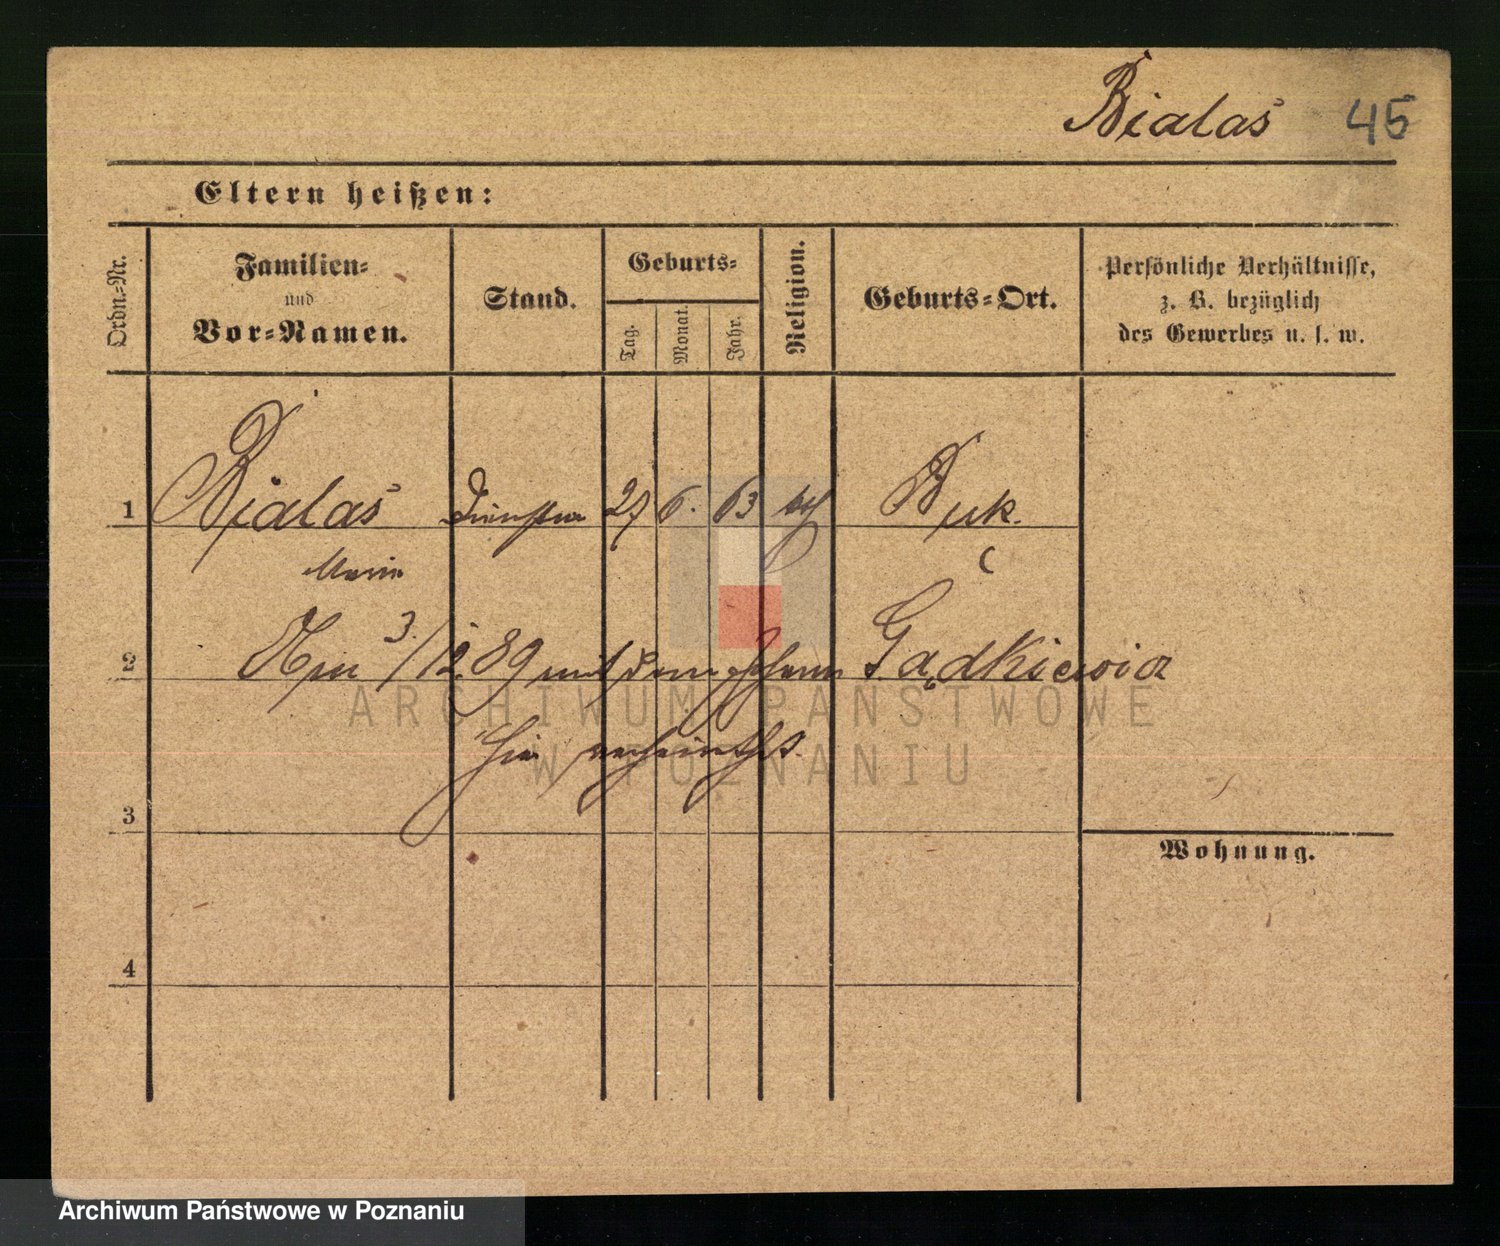 Bialas 45
Eltern heißen:
Ordn.-Nr.
Familien-
und
Vor-Namen.
Stand.
Geburts-
Tag.
Monat.
Jahr.
Religion.
Geburts-Ort.
Persönliche Verhältnisse,
z. B. bezüglich
des Gewerbes u. s. w.
1 Bialas 6. 63 Buk.
Marie
2 3./12. 89 mit dem Gądkiewicz
hier verheirathet.
3
Wohnung.
4
ARCHIWUM PAŃSTWOWE
W POZNANIU
Archiwum Państwowe w Poznaniu